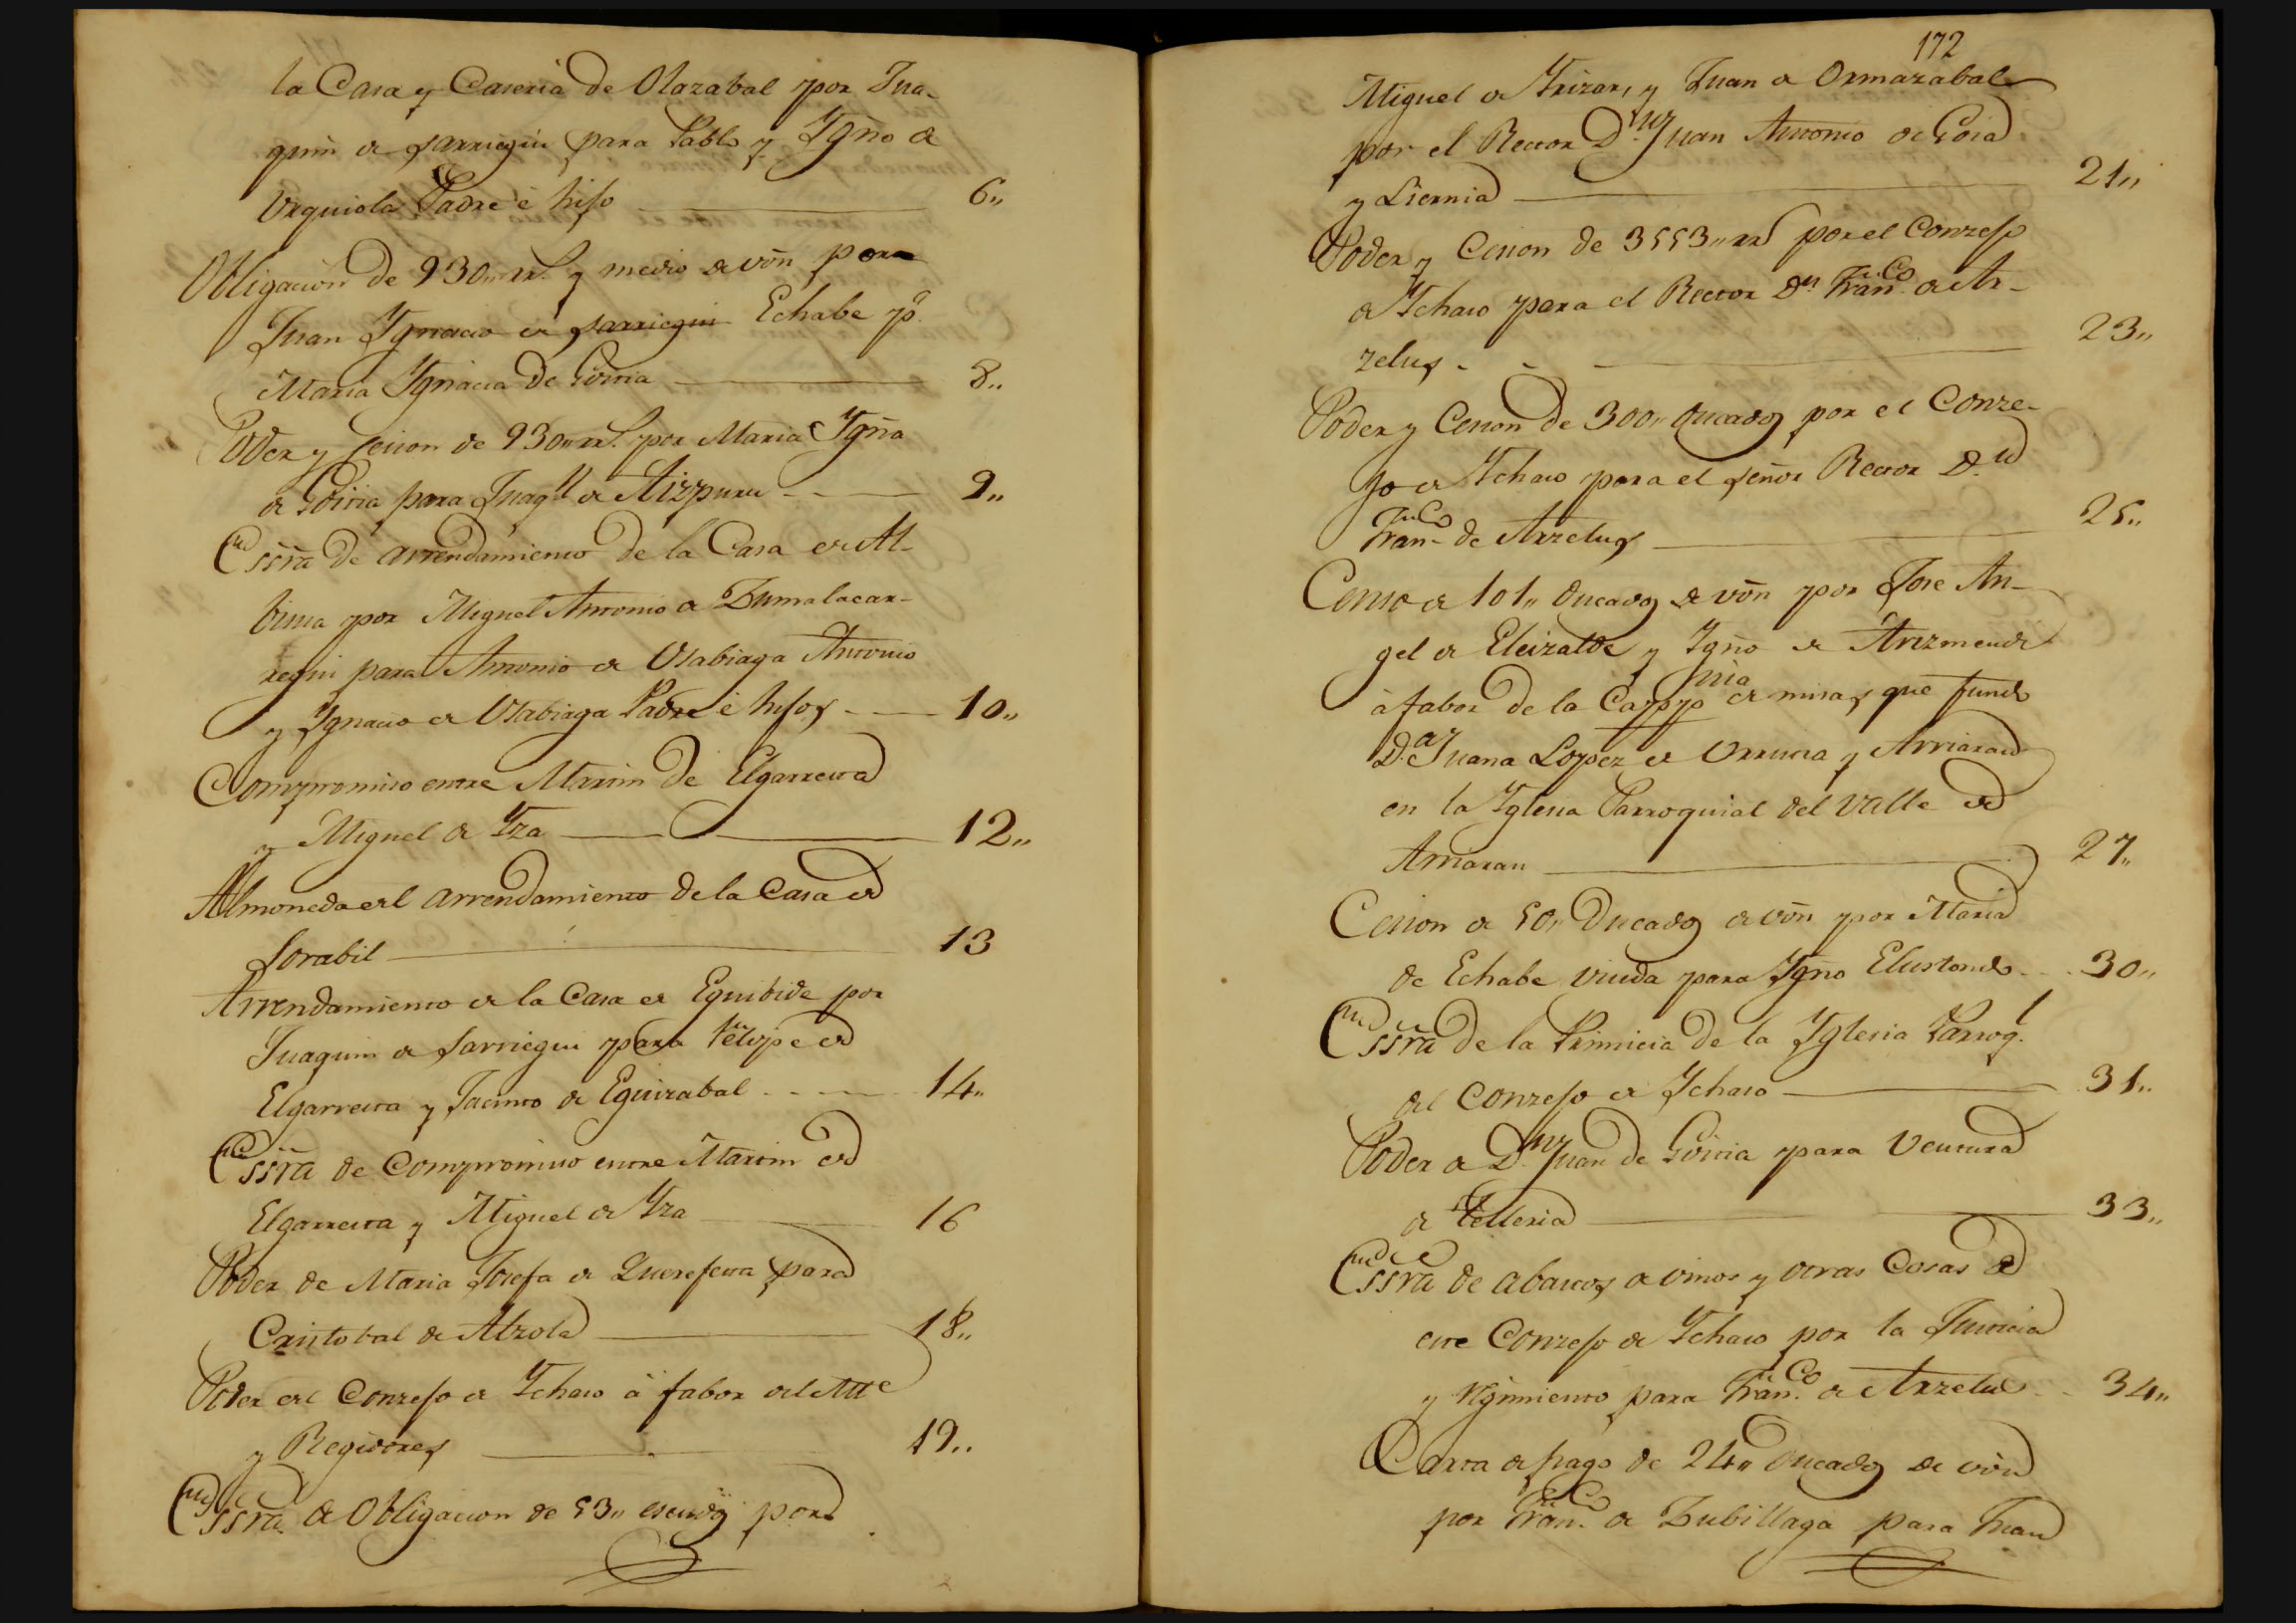 la Casa y Caseria de Olazabal por Jua-
quin de Sarriegui para Pablo y Ygño de
Urquiola Padre è hijo 6,,
Obligacion de 930,, rr.s y medio de von para
Juan Ygnacio de Sarriegui Echabe pª
Maria Ygnacia de Goiria 8,,
Poder y Cesion de 930,, rr.s por Maria Ygña
de Goiria para Juaqn de Aizpuru 9,,
Essra de arrendamiento de la Casa de Al-
bisua por Miguel Antonio de Zumalacar-
regui para Antonio de Usabiaga Antonio
y Ygnacio de Usabiaga Padre è hijos 10,,
Compromiso entre Martin de Elgarresta
y Miguel de Yza 12,,
Almoneda del arrendamiento de la Casa de
Sorabil 13
Arrendamiento de la Casa de Eguibide por
Juaquin de Sarriegui para Felipe de
Elgarresta y Jacinto de Eguizabal 14,,
Essra de Compromiso entre Martin de
Elgarresta y Miguel de Yza 16
Poder de Maria Josefa de Querejeta para
Cristobal de Alzola 18,,
Poder del Conzejo de Ychaso à fabor del Alle
y Regidores 19,,
Essra de Obligacion de 53,, escudos por
172
Miguel de Yrizar, y Juan de Ormazabal
por el Rector Dn Juan Antonio de Goia
y Liernia 21,,
Poder y Cesion de 3553,, rrs por el Conzejo
de Ychaso para el Rector Dn Franco de Ar-
zelus 23,,
Poder y Cesion de 300,, ducados por el Conze-
jo de Ychaso para el señor Rector Dn
Franco de Arzelus 25,,
Censo de 101,, ducados de von por Jose An-
gel de Eleizalde y Ygño de Arizmendi
à fabor de la Cappnia de misas que fundo
Da Juana Lopez de Urrutia y Arriaran
en la Yglesia Parroquial del valle de
Arriaran 27,,
Cesion de 50,, Ducados de von por Maria
de Echabe viuda para Ygño Elustondo 30,,
Essra de la Primicia de la Yglesia Parroql
del Conzejo de Ychaso 31,,
Poder de Dn Juan de Goiria para Ventura
de Telleria 33,,
Essra de abastos de vinos y otras Cosas de
este Conzejo de Ychaso por la Justicia
y Rejimiento para Franco de Arzelus 34,,
Carta de pago de 24,, ducados de von
por Franco de Zubillaga para Juan